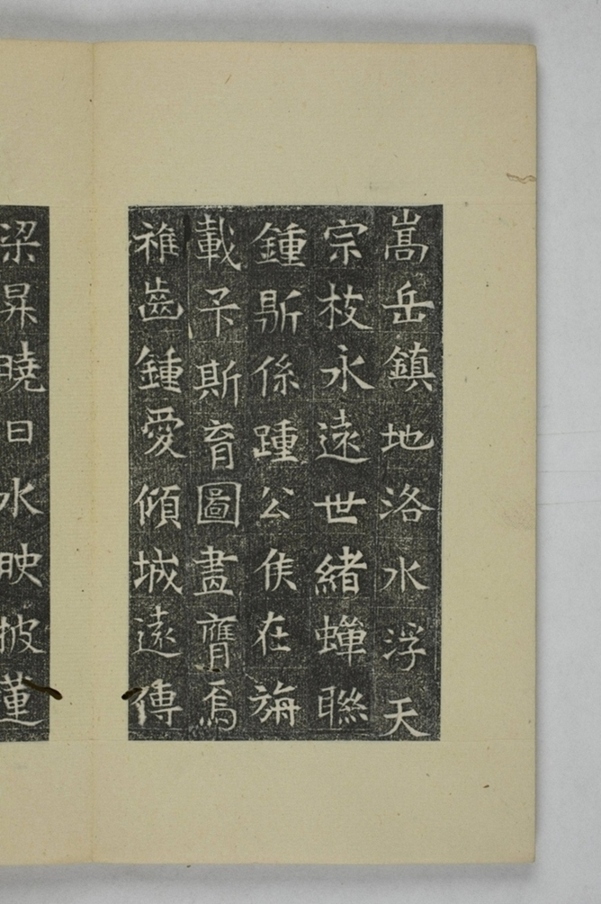 嵩岳鎮地洛水浮天
宗枝永遠世緒蟬聯
鍾係踵公侯在旃
載弄斯育圖畫膺焉
稚齒鍾愛傾城遠傳
梁昇曉日水映披蓮